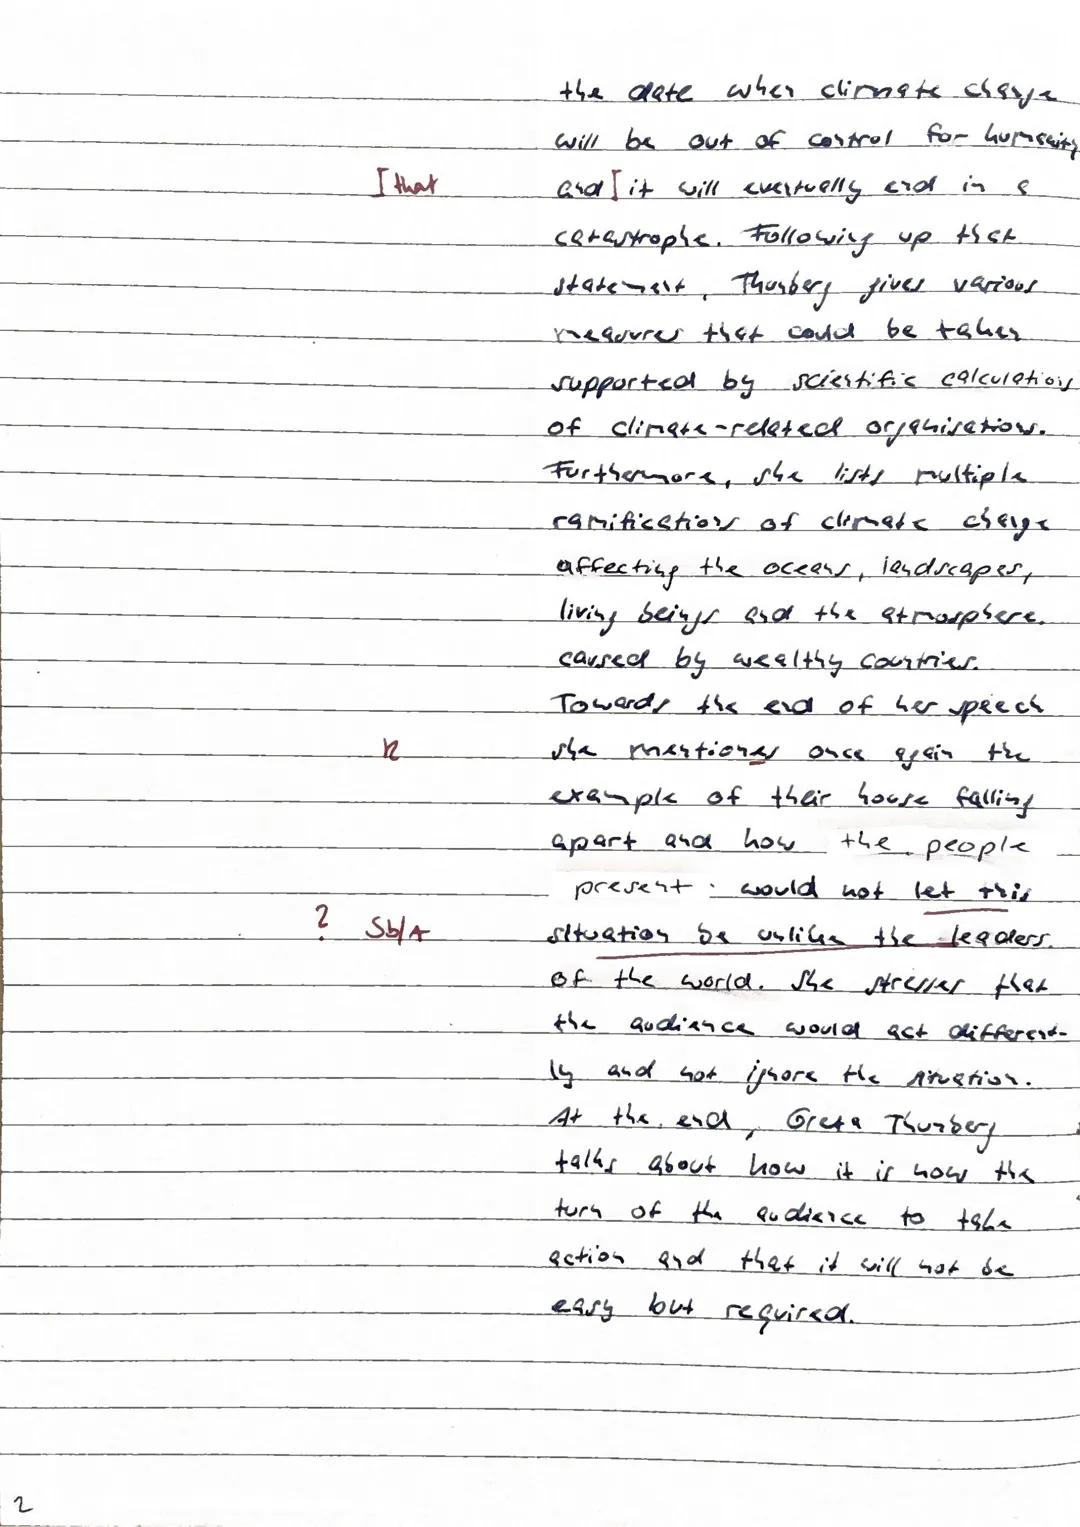 the date when climate change
will be out of control for humanity
[ that
and [ it will eventually end in a
catastrophe. Following up that
statement, Thunberg gives various
measures that could be taken
supported by scientific calculations
of climate-related organisations.
Furthermore, she lists multiple
ramifications of climate change
affecting the oceans, landscapes,
living beings and the atmosphere.
caused by wealthy countries.
Towards the end of her speech
R
she mentiones once again the
example of their house falling
apart and how the people
present would not let this
? Sb/A
situation be unlike the leaders
of the world. She stresses that
the audience would act different-
ly and not ignore the situation.
At the end, Greta Thunberg
talks about how it is now the
turn of the audience to take
action and that it will not be
easy but required.
2